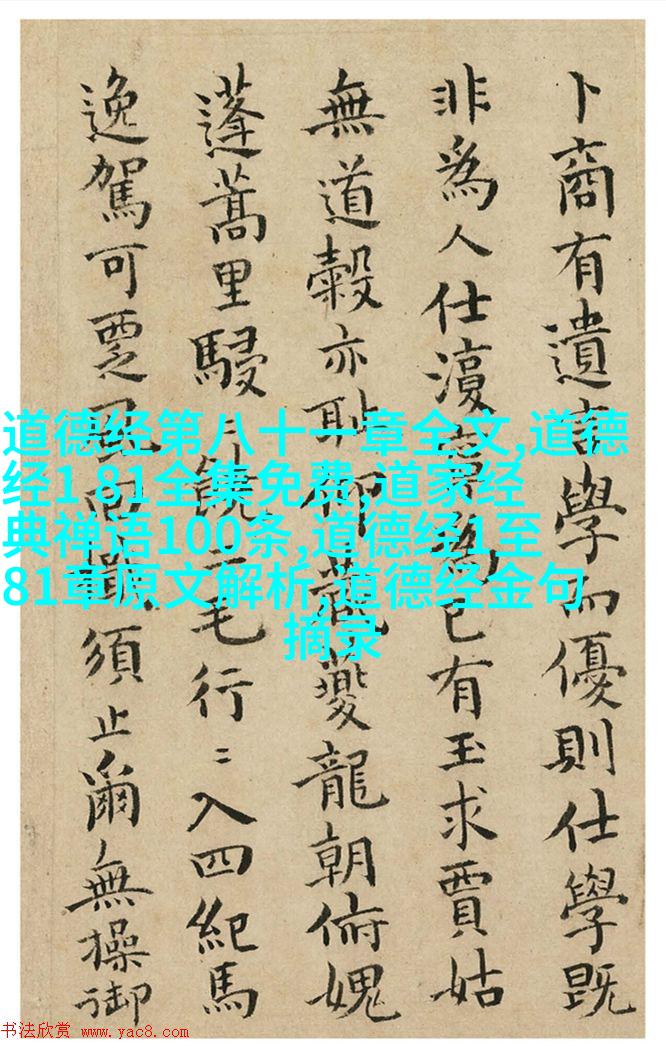 卜商有遺言學而優則仕學既
非為人仕復為已有玉求賈姑
無道穀亦耻仰夔龍朝俯媿
蓬蒿里駸〻饒二毛行〻入四紀馬
逸駕可覂須止爾無操御
道德经第八十一章全文,道德
经1-81全集免费,道家经
典禅语100条,道德经1至
81章原文解析,道德经金句
摘录
书法欣赏 www.yac8.com